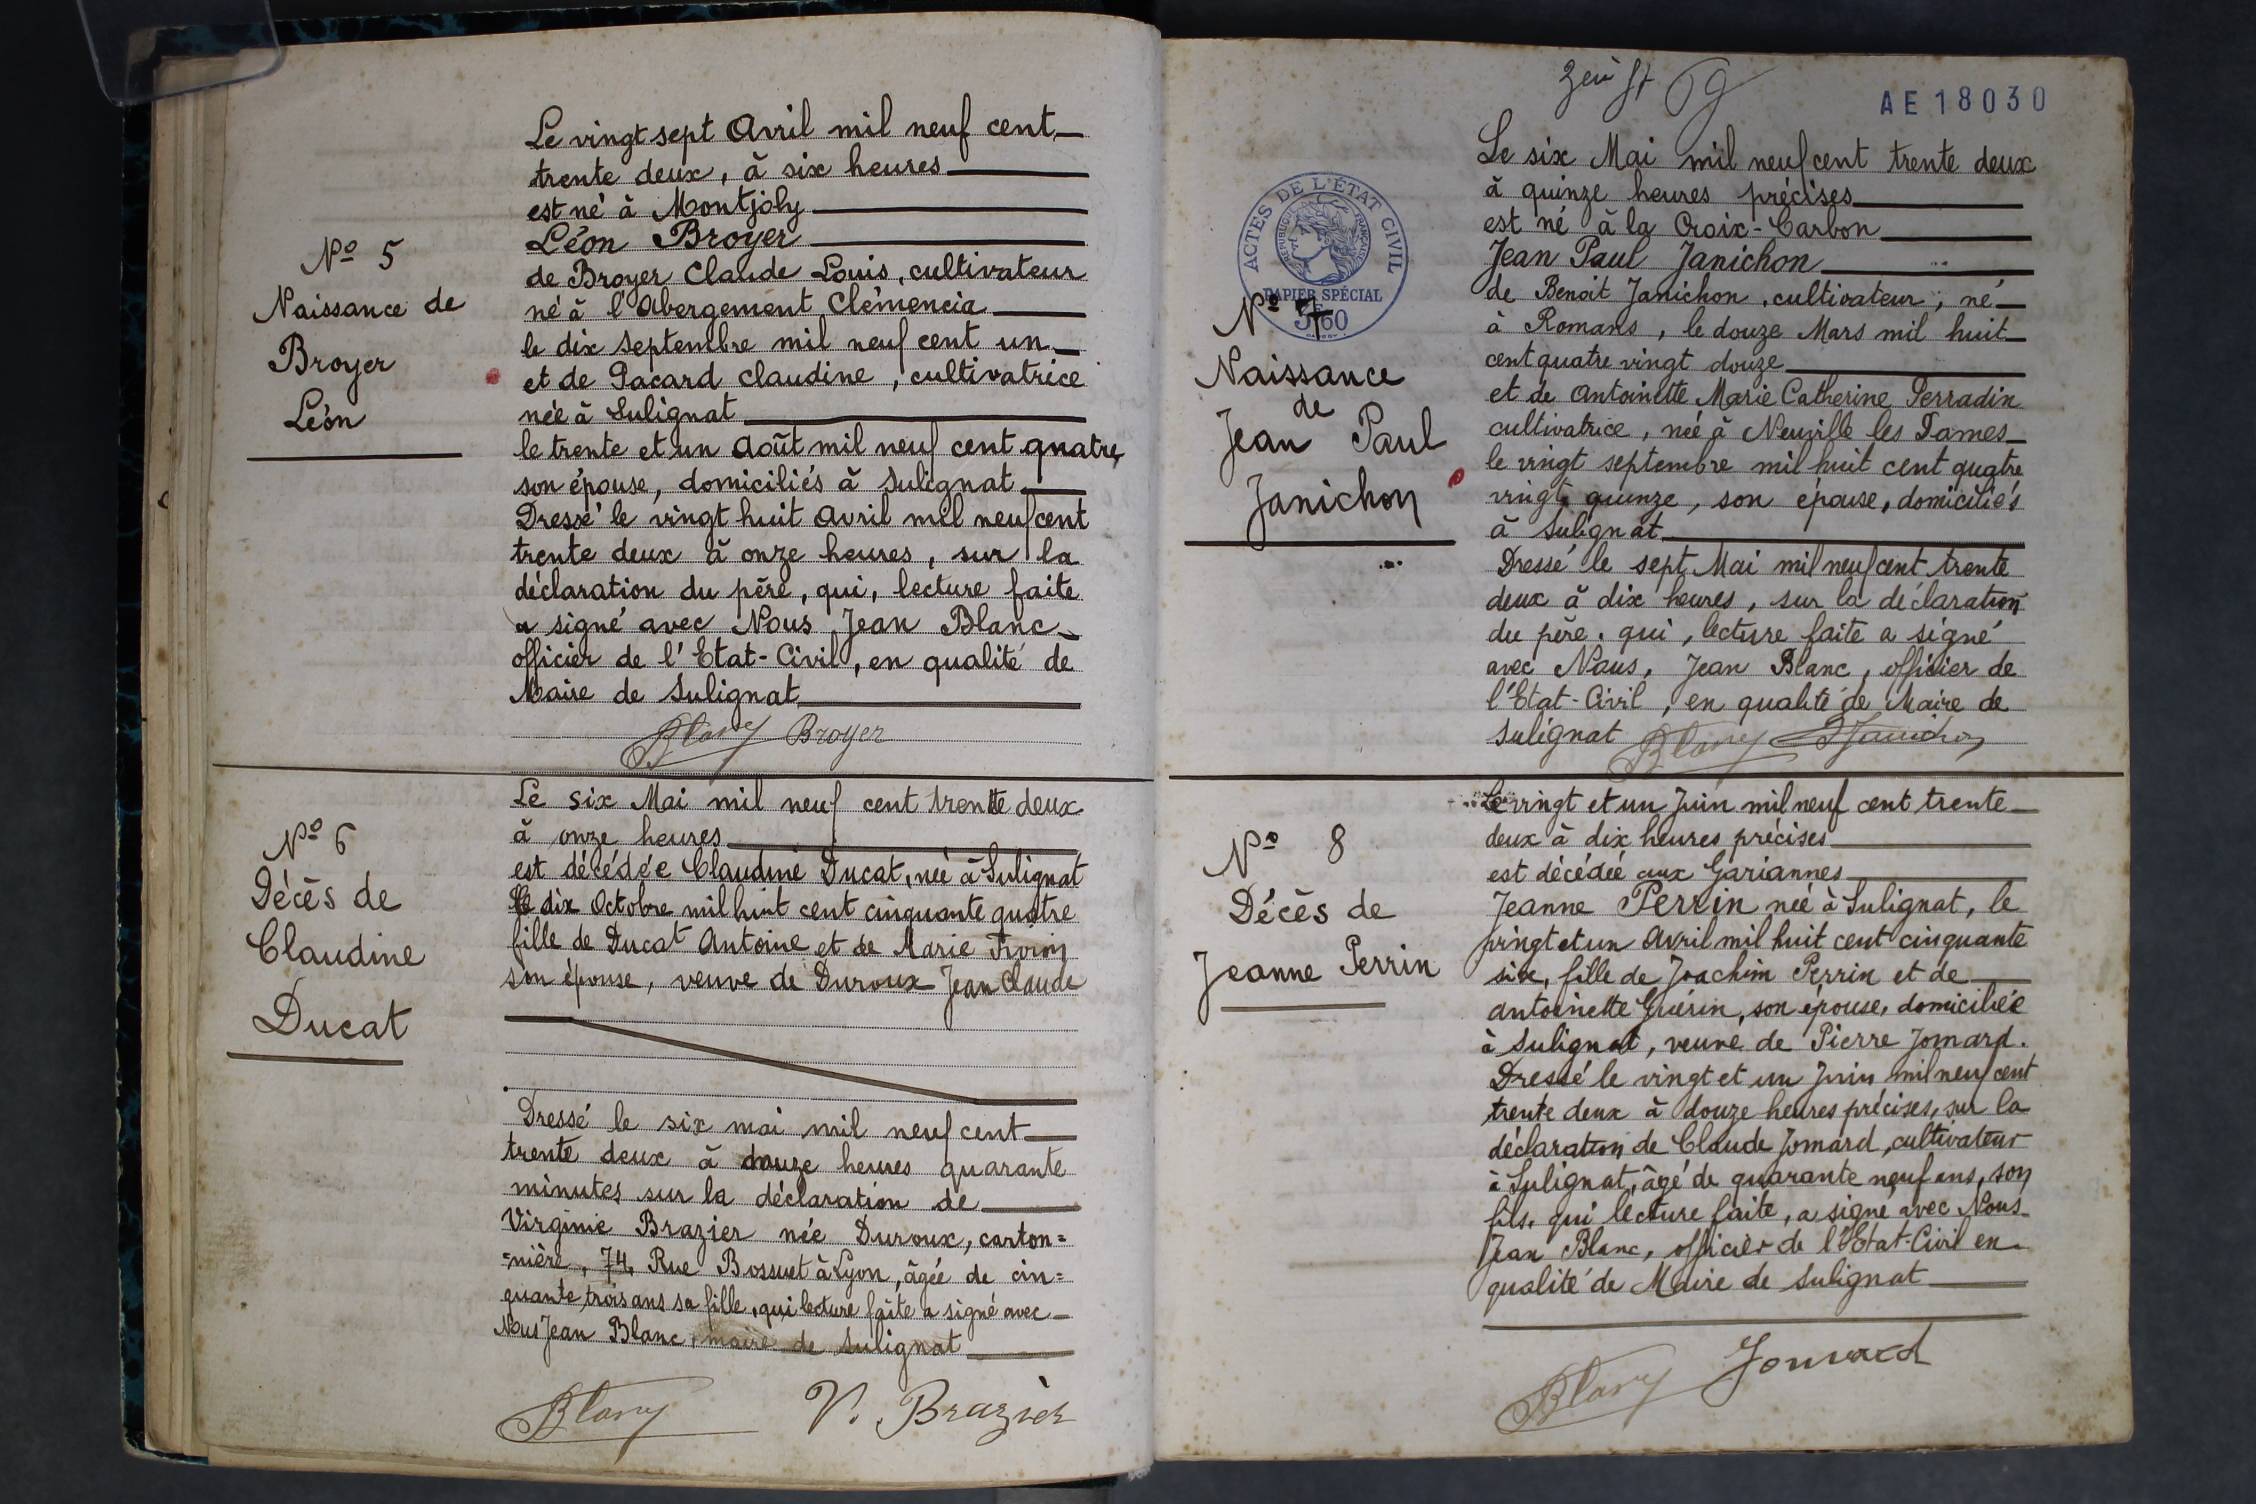 Nº 5
Naissance de
Broyer
Léon
Le vingt sept Avril mil neuf cent
trente deux, à six heures
est né à Montjoly
Léon Broyer
de Broyer Claude Louis, cultivateur
né à l'Abergement Clémencia
le dix septembre mil neuf cent un
et de Pacard Claudine, cultivatrice
née à Sulignat
le trente et un Août mil neuf cent quatre,
son épouse, domiciliés à Sulignat
Dressé le vingt huit Avril mil neuf cent
trente deux à onze heures, sur la
déclaration du père, qui, lecture faite
a signé avec Nous Jean Blanc
officier de l'Etat-Civil, en qualité de
Maire de Sulignat
Blanc Broyer
Nº 6
Décès de
Claudine
Ducat
Le six Mai mil neuf cent trente deux
à onze heures
est décédée Claudine Ducat, née à Sulignat
le dix Octobre mil huit cent cinquante quatre
fille de Ducat Antoine et de Marie
son épouse, veuve de Duroux Jean Claude
Dressé le six mai mil neuf cent
trente deux à douze heures quarante
minutes sur la déclaration de
Virginie Brazier née Duroux, carton=
=nière, 74, Rue Bossuet à Lyon, âgée de cin=
quante trois ans sa fille, qui lecture faite a signé avec
Nous Jean Blanc, maire de Sulignat
Blanc V. Brazier
AE18030
ACTES DE L'ÉTAT CIVIL
RÉPUBLIQUE FRANÇAISE
PAPIER SPÉCIAL
5F60
Nº 7
Naissance
de
Jean Paul
Janichon
Le six Mai mil neuf cent trente deux
à quinze heures précises
est né à la Croix-Carbon
Jean Paul Janichon
de Benoit Janichon, cultivateur, né
à Romans, le douze Mars mil huit
cent quatre vingt douze
et de Antoinette Marie Catherine Perradin
cultivatrice, née à Neuville les Dames
le vingt septembre mil huit cent quatre
vingt quinze, son épouse, domiciliés
à Sulignat
Dressé le sept Mai mil neuf cent trente
deux à dix heures, sur la déclaration
du père, qui, lecture faite a signé
avec Nous, Jean Blanc, officier de
l'Etat-Civil, en qualité de Maire de
Sulignat Blanc Janichon
Nº 8
Décès de
Jeanne Perrin
Le vingt et un Juin mil neuf cent trente
deux à dix heures précises
est décédée aux Gariannes
Jeanne Perrin née à Sulignat, le
vingt et un Avril mil huit cent cinquante
six, fille de Joachim Perrin et de
Antoinette Guérin, son épouse, domiciliée
à Sulignat, veuve de Pierre Jomard.
Dressé le vingt et un Juin mil neuf cent
trente deux à douze heures précises, sur la
déclaration de Claude Jomard, cultivateur
à Sulignat, âgé de quarante neuf ans, son
fils, qui lecture faite, a signé avec Nous
Jean Blanc, officier de l'Etat-Civil en
qualité de Maire de Sulignat
Blanc Jomard